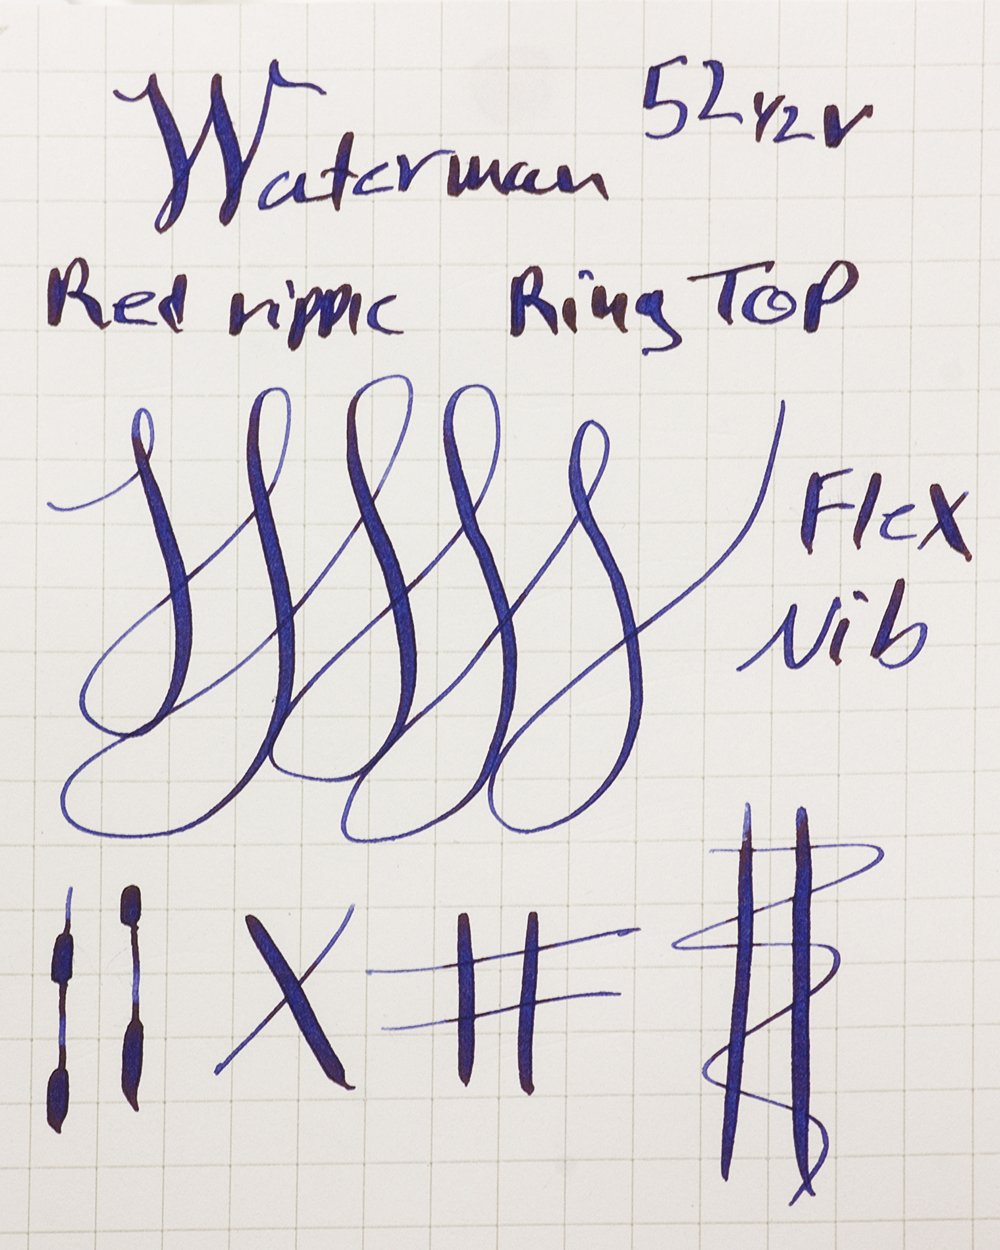 Waterman 52 1/2 V
Red ripple Ring Top
Flex
Nib
X #